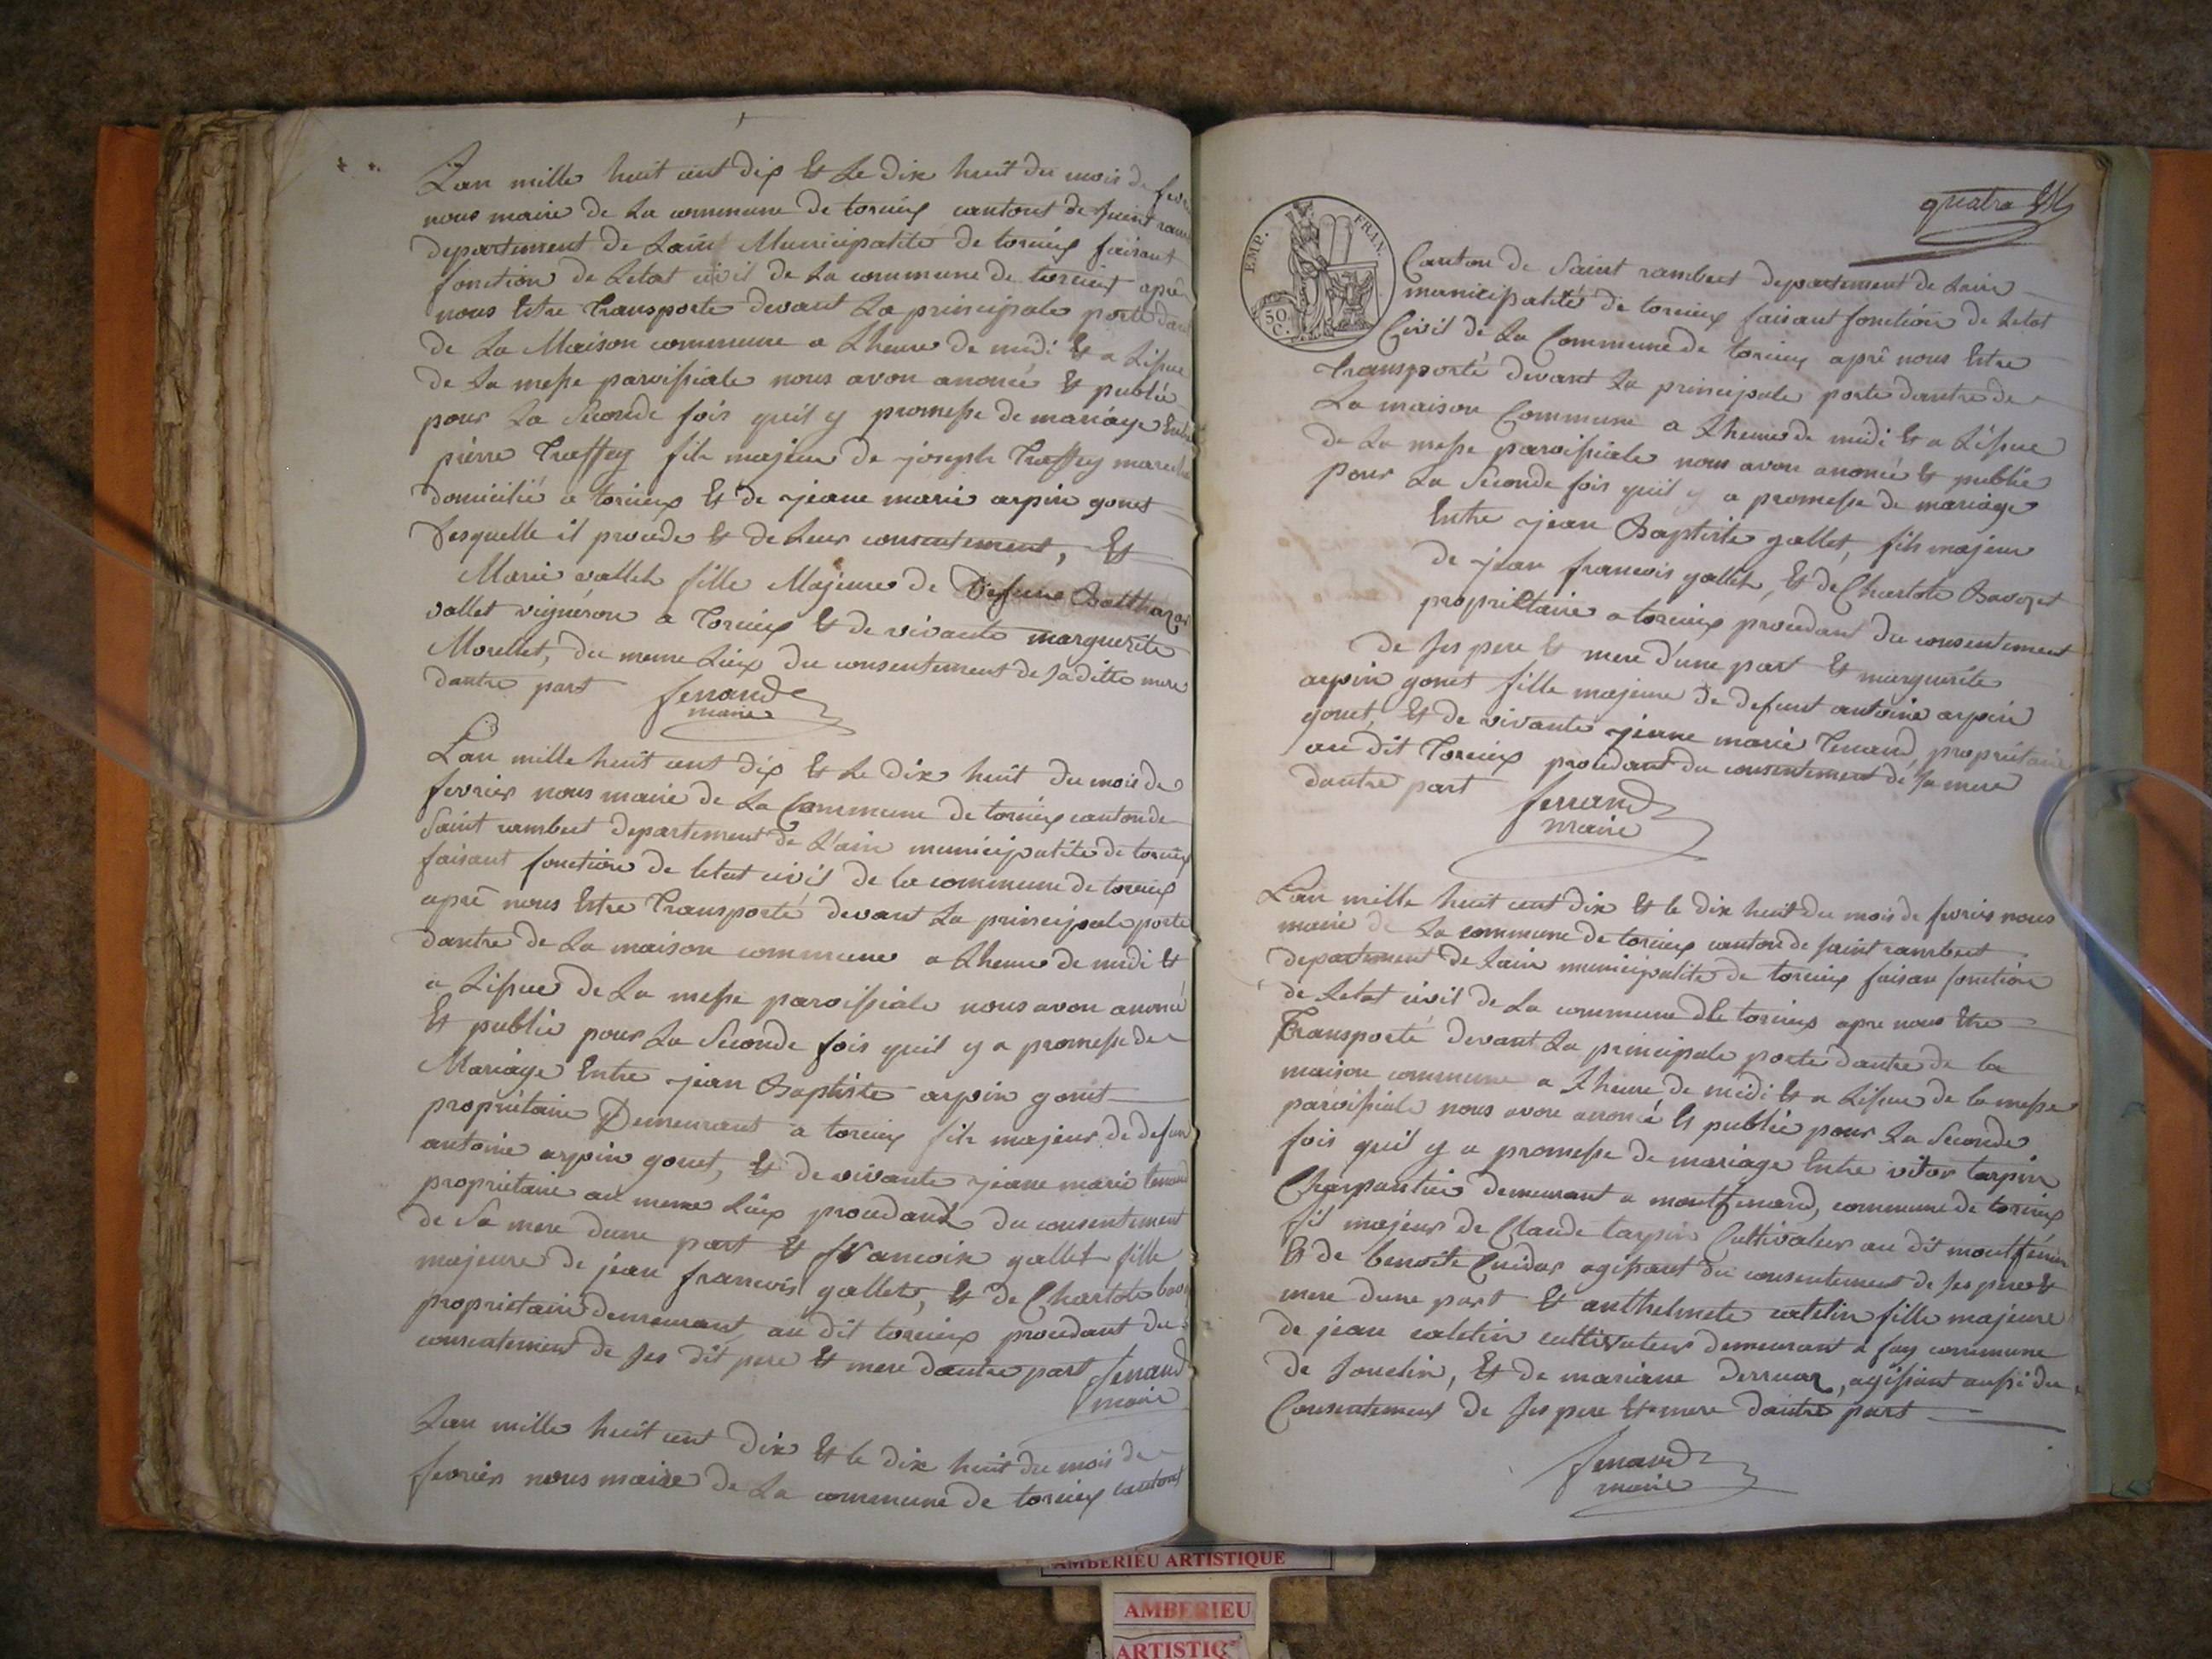 Lan mille huit cent dix Et Le dix huit du mois de fevr
nous maire de La commune de torcieux cantont de saint ram
departement de Lain Municipalité de torcieux faisant
fonction de Letat civil de La commune de torcieux aprê
nous Estre Transporte devant La principale porte dant
de La Maison commune a Lheure de midi Et a Lissue
de La messe paroissiale nous avon anoncé Et publié
pour La Seconde fois quil y promesse de mariage Entre
pierre Treffey fils majeur de joseph Treffey marechal
domicilié a torcieux Et de jeane marie arpin gonet
desquelle il procede Et de Leur consentement, Et
Marie vallet fille Majeure de Defunt Balthazar
vallet vigneron a Torcieux Et de vivante marguerite
Morellet, du meme Lieux du consentement de sa ditte mere
dautre part ferrand
maire
Lan mille huit cent dix Et Le dix huit du mois de
fevrier nous maire de La Commune de torcieux canton de
Saint rambert departement de Lain municipalite de torcieux
faisant fonction de letat civil de la commune de torcieux
aprê nous Estre Transporté devant La principale porte
dantre de La maison commune a Lheure de midi Et
a Lissue de La messe paroissiale nous avon anoncé
Et publié pour La Seconde fois quil y a promesse de
Mariage Entre jean Baptiste arpin gonet
propriétaire Demeurant a torcieux fils majeur de defun
antoine arpin gonet, Et de vivante jeane marie tenand
propriétaire au meme Lieux procedant du consentement
de Sa mere dune part Et francoise gallet fille
majeure de jean francois gallet, Et de Charlote bavoz
propriétaire demeurant au dit torcieux procedant du
consentement de ses dit pere Et mere dautre part ferrand
maire
Lan mille huit cent dix Et le dix huit du mois de
fevrier nous maire de La commune de torcieux cantont
quatre
EMP. FRAN.
50 C.
Canton de Saint rambert departement de Lain
municipalité de torcieux faisant fonction de Letat
Civil de La Commune de torcieux aprê nous Estre
Transporté devant La principale porte dantre de
La maison Commune a Lheure de midi Et a Lissue
de La messe paroissiale nous avon anoncé Et publié
pour La Seconde fois quil y a promesse de mariage
Entre jean Baptiste gallet, fils majeur
de jean francois gallet, Et de Charlote Bavozet
propriétaire a torcieux procedant du consentement
de ses pere Et mere d'une part Et marguerite
arpin gonet fille majeure de defunt antoine arpin
gonet, Et de vivante jeane marie Tenand, propriétaire
au dit Torcieux procedant du consentement de sa mere
dautre part ferrand
maire
Lan mille huit cent dix Et le dix huit du mois de fevrier nous
maire de La commune de torcieux canton de saint rambert
departement de Lain municipalite de torcieux faisan fonction
de Letat civil de La commune de torcieux apre nous Etre
Transporté devant La principale porte dantre de la
maison commune a Lheure de midi Et a Lissue de la messe
paroissiale nous avon anoncé Et publié pour La Seconde
fois quil y a promesse de mariage Entre vitor tarpin
Charpantier demeurant a montferrand, commune de torcieux
fil majeur de Claude tarpin Cultivateur au dit montferran
Et de benoite Cuidar agissant du consentement de ses pere Et
mere dune part Et anthelmete catelin fille majeure
de jean catelin cultivateur demeurant a fay commune
de Souclin, Et de mariane derruaz, agissant aussi du
Consentement de ses pere Et mere dautre part
ferrand
maire
AMBERIEU ARTISTIQUE
AMBERIEU
ARTISTIQUE